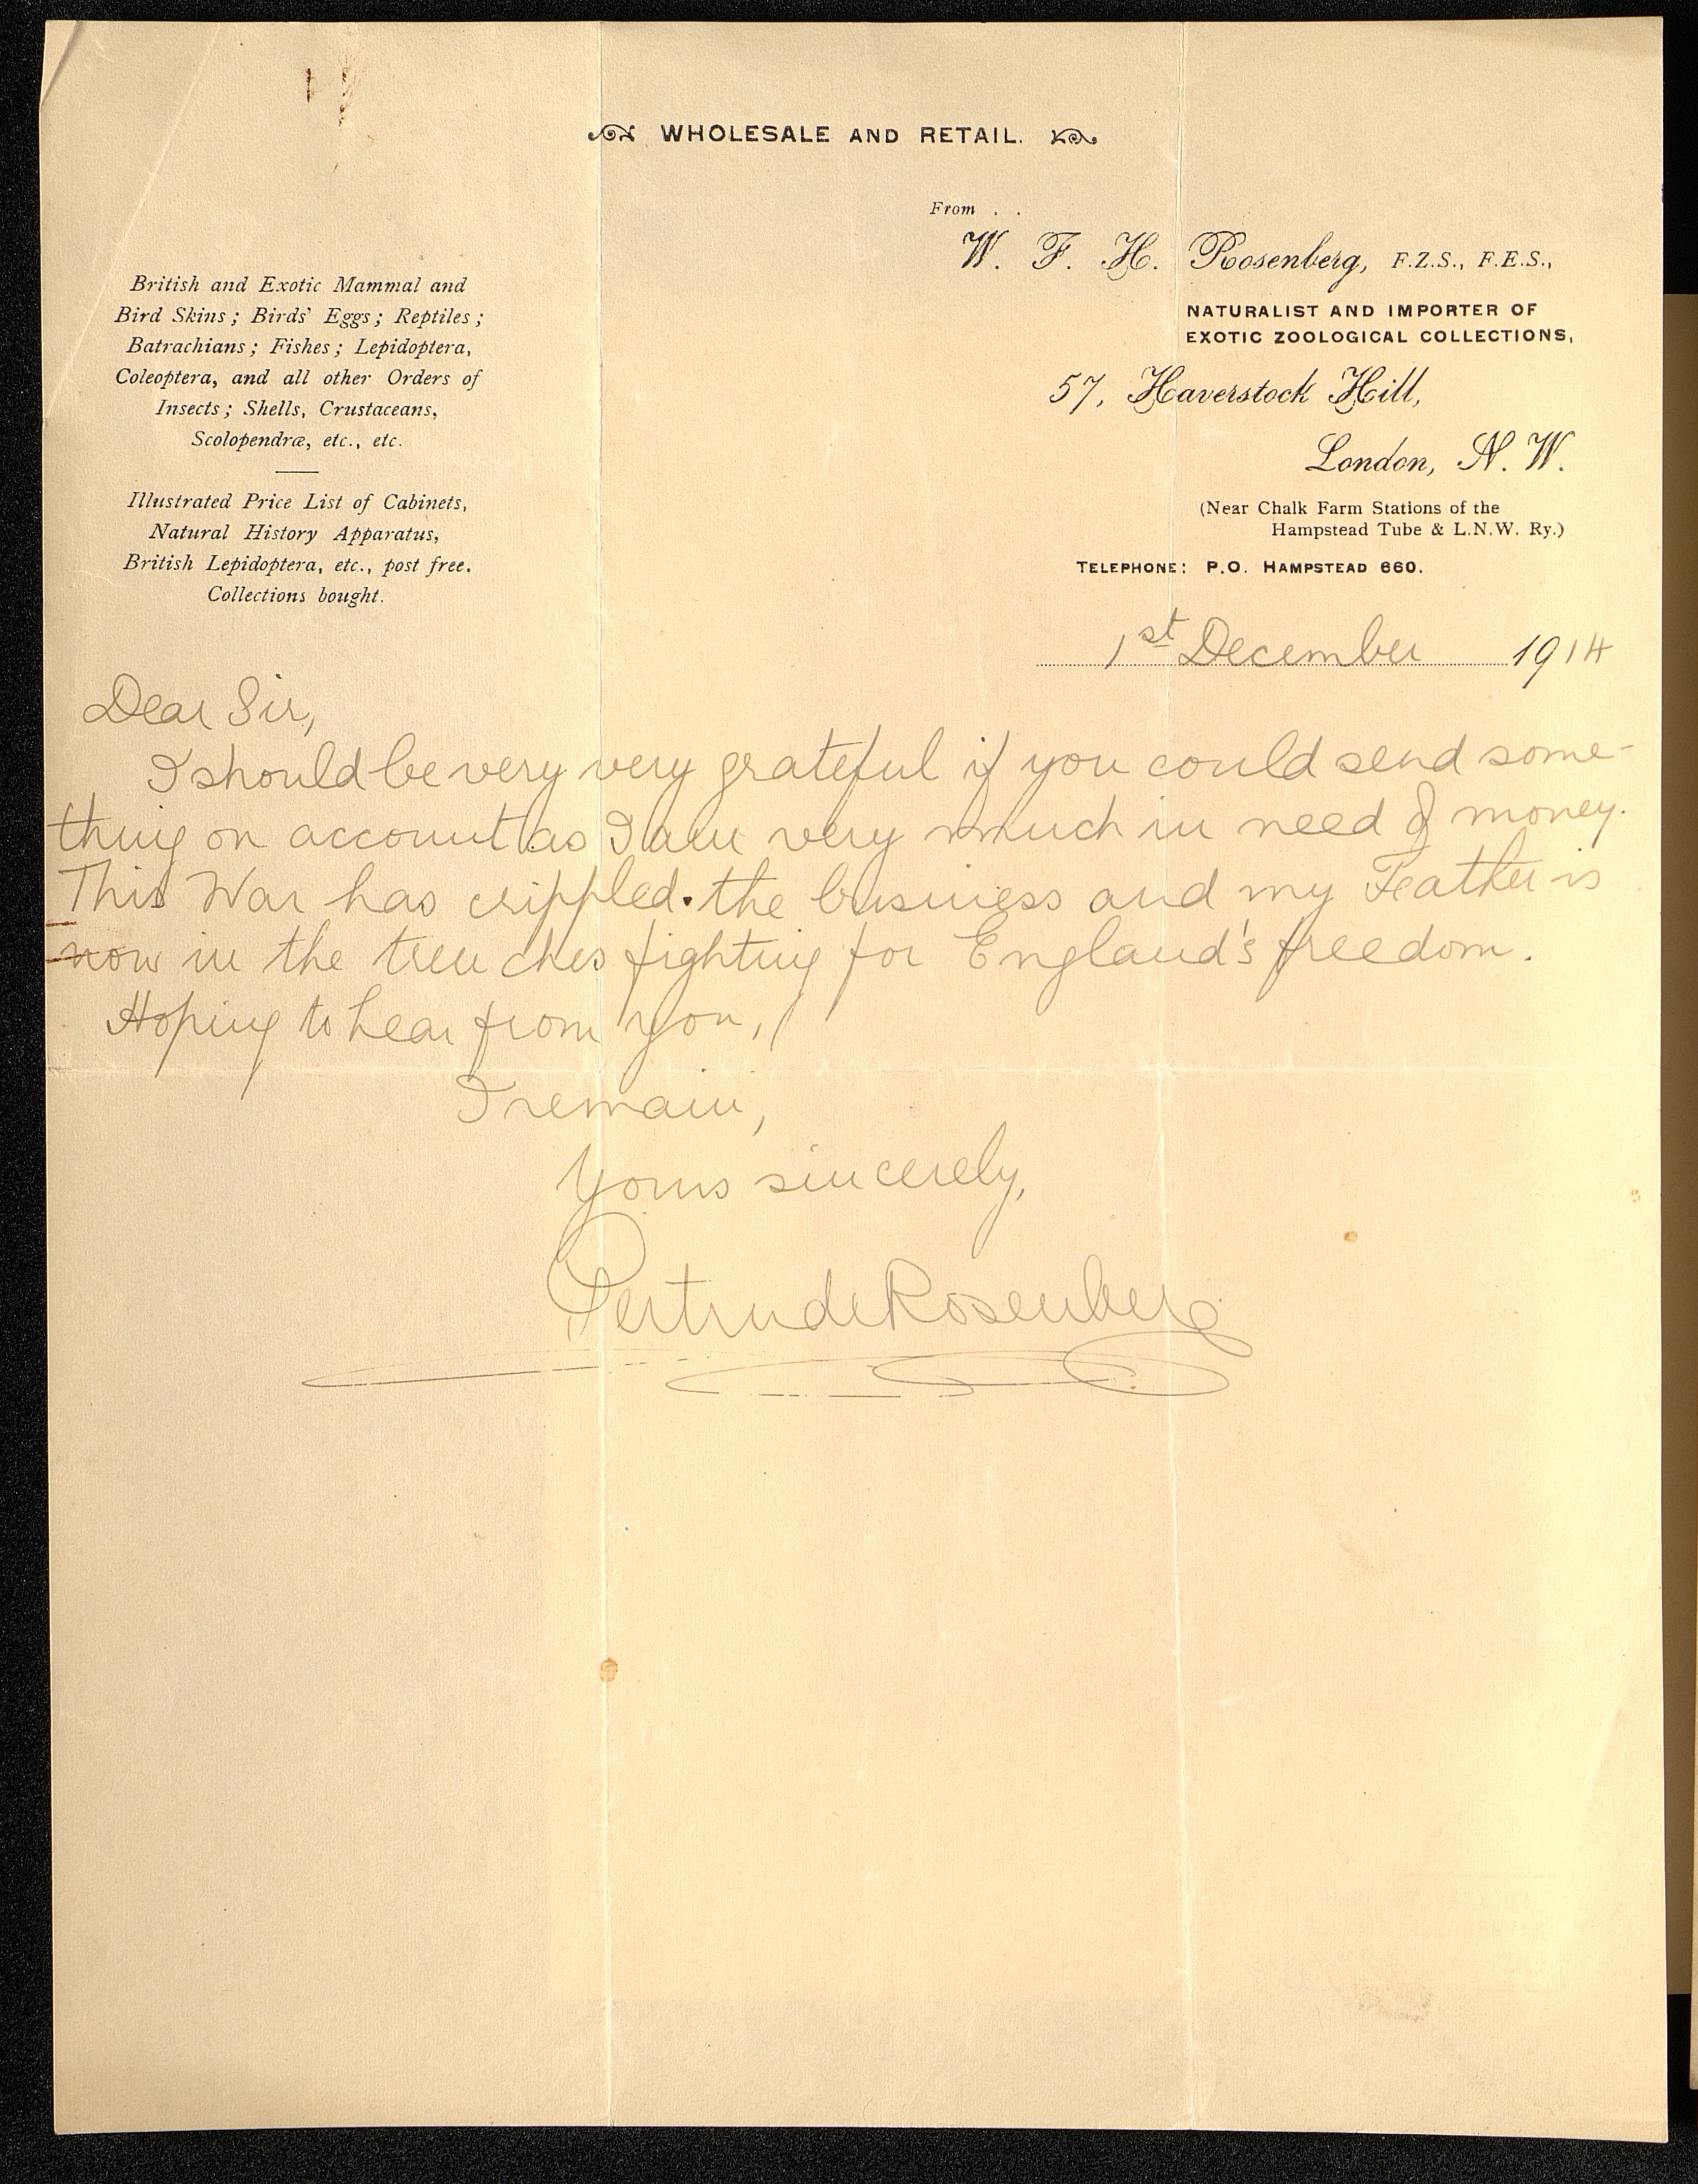 WHOLESALE AND RETAIL.
From . .
W. F. H. Rosenberg, F.Z.S., F.E.S.,
NATURALIST AND IMPORTER OF
EXOTIC ZOOLOGICAL COLLECTIONS,
57, Haverstock Hill,
London, N. W.
(Near Chalk Farm Stations of the
Hampstead Tube & L.N.W. Ry.)
TELEPHONE: P.O. HAMPSTEAD 660.
British and Exotic Mammal and
Bird Skins; Birds' Eggs; Reptiles;
Batrachians; Fishes; Lepidoptera,
Coleoptera, and all other Orders of
Insects; Shells, Crustaceans,
Scolopendræ, etc., etc.
Illustrated Price List of Cabinets,
Natural History Apparatus,
British Lepidoptera, etc., post free.
Collections bought.
1st December 1914
Dear Sir,
I should be very very grateful if you could send some-
thing on account as I am very much in need of money.
This War has crippled the business and my Feather is
now in the trenches fighting for England's freedom.
Hoping to hear from you,
I remain,
Yours sincerely,
Gertrude Rosenberg